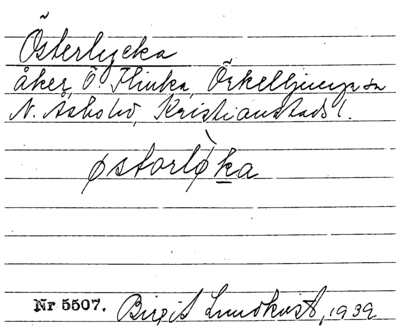 Österlycka
åker, Ö. Flinka, Örkelljunga sn
N. Åsbo hd, Kristianstads l.
østorlø̀ka
Nr 5507. Birgit Lundkvist, 1939